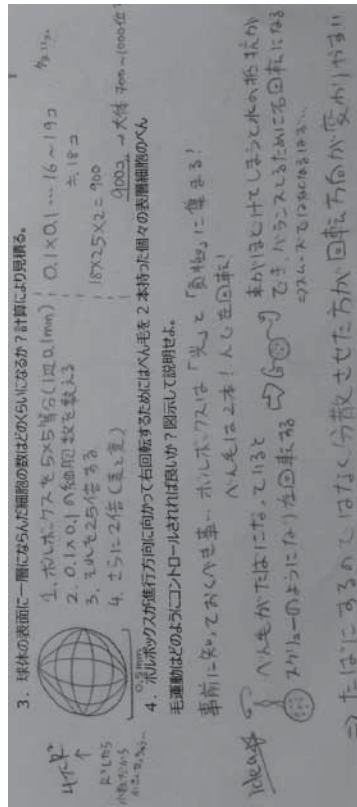 3. 球体の表面に一層にならんだ細胞の数はどのくらいになるか？計算により見積る。
4πR²
↑
0.5mm
1. ボルボックスを5×5等分(1辺0.1mm)
2. 0.1×0.1の細胞数を数える
3. それを25倍する
4. さらに2倍(表と裏)
0.1×0.1 … 16～19コ
≒18コ
18×25×2=900
900コ → 大体700～1000位?
4. ボルボックスが進行方向に向かって右回転するためにはべん毛を2本持った個々の表層細胞のべん
毛運動はどのようにコントロールされれば良いか？図示して説明せよ。
事前に知っておくべき事… ボルボックスは「光」と「負極」に集まる！
べん毛は2本！
idea
べん毛がたばになっていると
スクリューのようになり左回転する
束がほどけてしまうと水の抵抗が
でき、バランスとるために右回転になる
⇒たばにするのではなく分散させた方が回転方向が変わりやすい